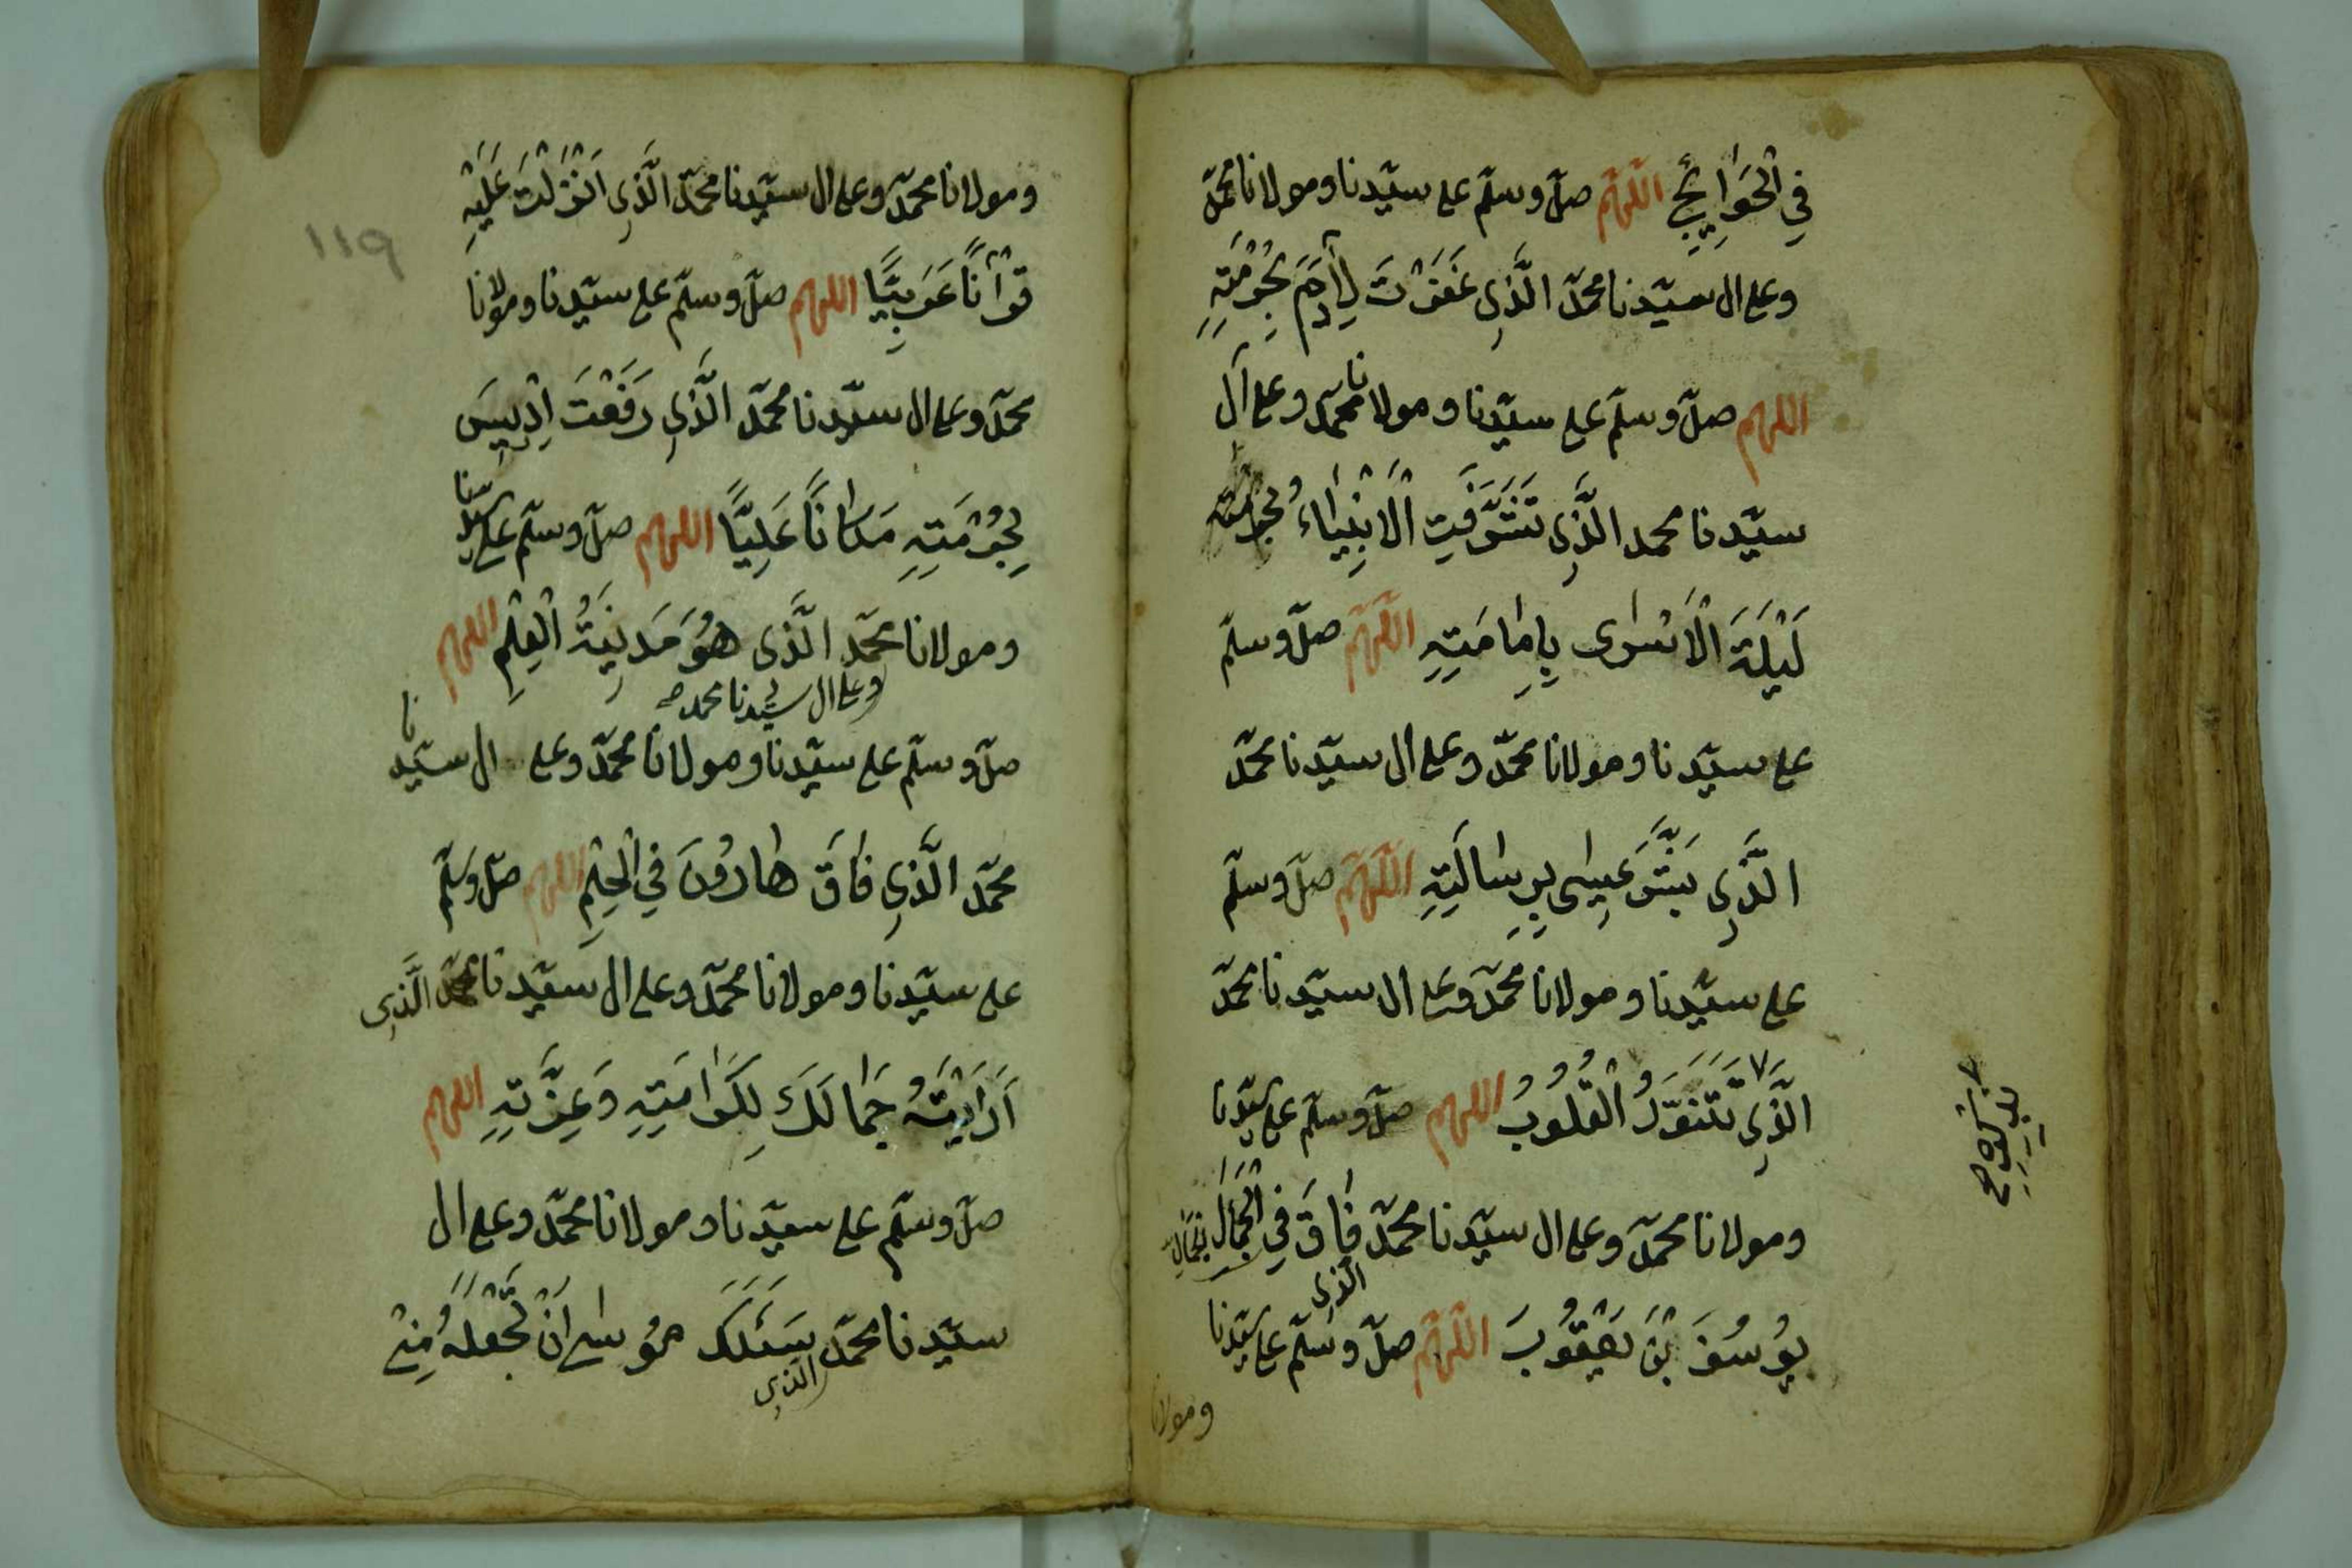 فِي الْحَوَائِجِ اللّهم صلّ وسلّم على سيّدنا ومولانا محمّد
وعلى ال سيّدنا محمّد الَّذِي غَفَرْتَ لِآدَمَ بِحُرْمَتِهِ
اللهم صلّ وسلّم على سيّدنا ومولانا محمّد وعلى آل
سيّدنا محمد الَّذِي تَشَرَّفَتِ الْاَنْبِيَاءُ بحرمته
لَيْلَةَ الْاَسْرٰى بِاِمَامَتِهِ اللّهم صلّ وسلّم
على سيّدنا ومولانا محمّد وعلى ال سيّدنا محمّد
الَّذِي بَشَّرَ عِيسٰى بِرِسَالَتِهِ اللّهم صلّ وسلّم
على سيّدنا ومولانا محمّد وعلى ال سيّدنا محمّد
الَّذِي تَتَنَوَّرُ الْقُلُوبُ اللهم صلّ وسلّم على سيّدنا
ومولانا محمّد وعلى ال سيّدنا محمّد فَاقَ فِي الْجَمَالِ بجماله
الّذى
يُوسُفَ بْنَ يَعْقُوبَ اللّهم صلّ وسلّم على سيّدنا
ومولانا
١١٩
ومولانا محمّد وعلى ال سيّدنا محمّد الَّذِي اَنْزَلْتَ عَلَيْهِ
قُرْاٰنًا عَرَبِيًّا اللهم صلّ وسلّم على سيّدنا ومولانا
محمّد وعلى ال سيّدنا محمّد الَّذِي رَفَعْتَ اِدْرِيسَ
بِحُرْمَتِهِ مَكَانًا عَلِيًّا اللهم صلّ وسلّم على سيّدنا
ومولانا محمّد الَّذِى هُوَ مَدِينَةُ الْعِلْمِ اللهم
وعلى ال سيّدنا محمد صح
صلّ وسلّم على سيّدنا ومولانا محمّد وعلى ال سيّدنا
محمّد الَّذِي فَاقَ هَارُونَ فِي الْحِلْمِ اللهم صلّ وسلّم
على سيّدنا ومولانا محمّد وعلى ال سيّدنا محمّد الَّذِي
اَرَاَيْتَهُ جَمَالَكَ لِكَرَامَتِهِ وَعِزَّتِهِ اللهم
صلّ وسلّم على سيّدنا ومولانا محمّد وعلى ال
سيّدنا محمّد سَئَلَكَ مُوسٰى اَنْ تَجْعَلَهُ مِنْ
الّذى